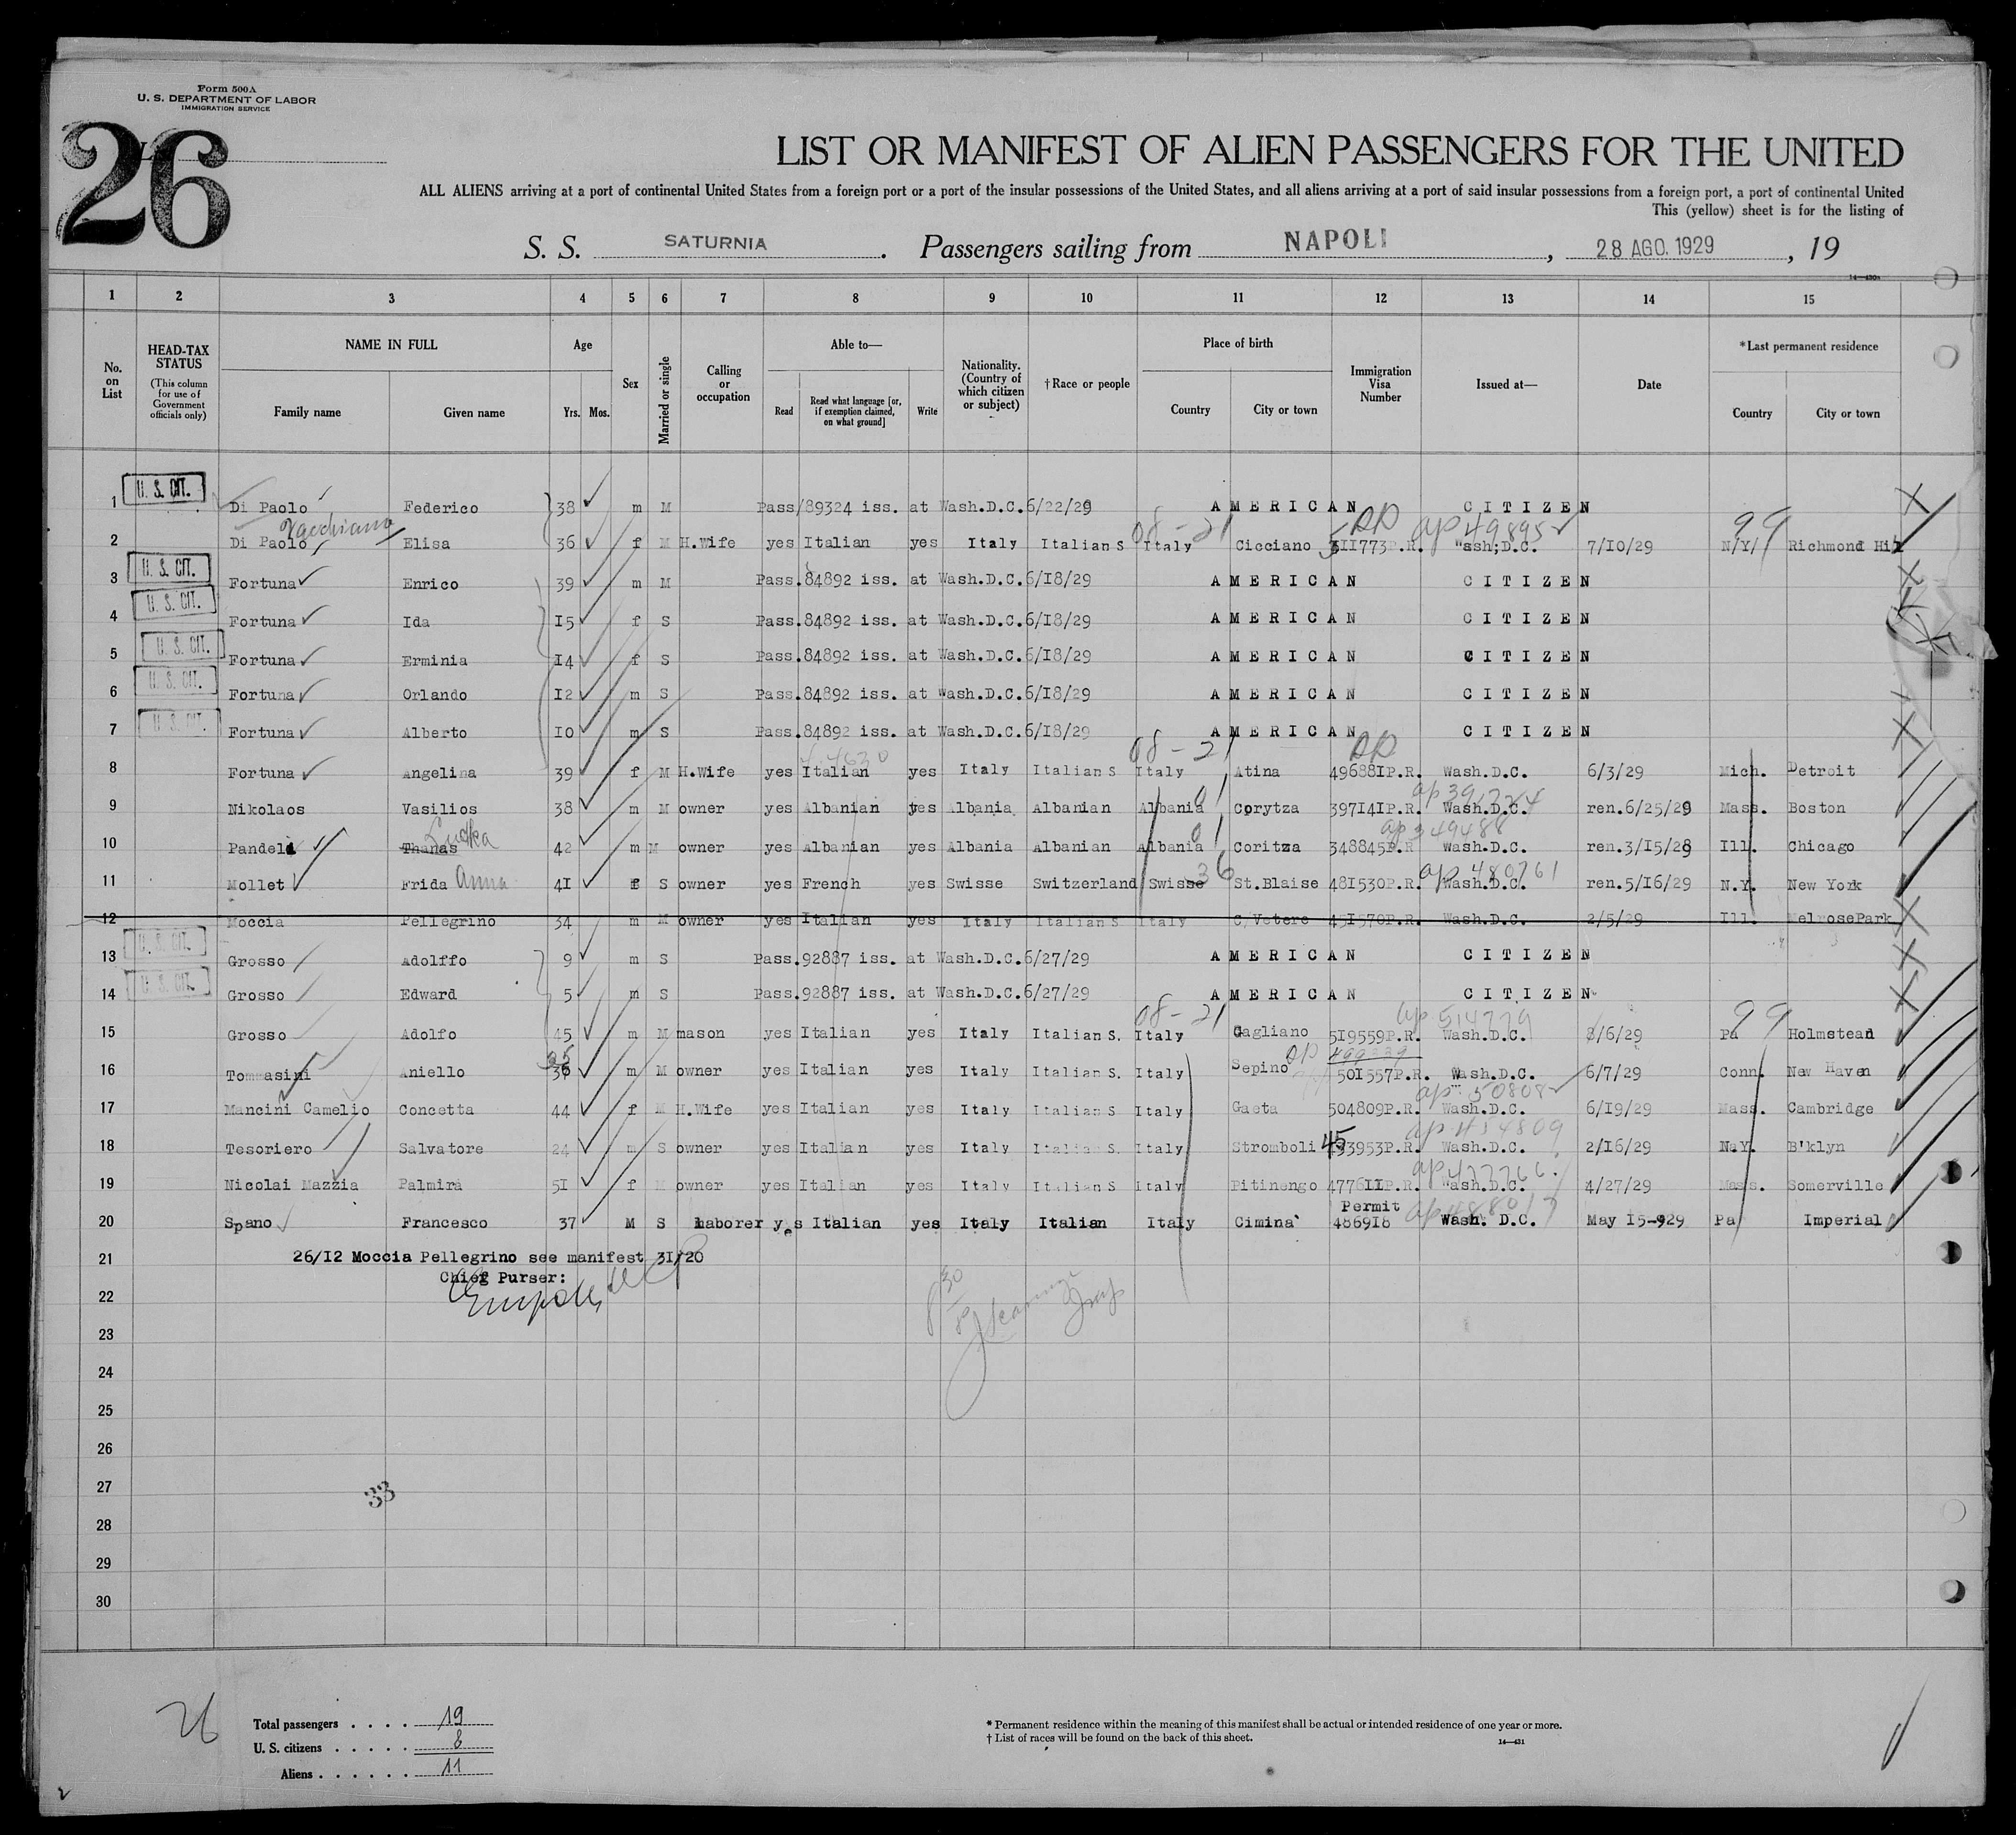 Form 500A
U. S. DEPARTMENT OF LABOR
IMMIGRATION SERVICE
26
LIST OR MANIFEST OF ALIEN PASSENGERS FOR THE UNITED
ALL ALIENS arriving at a port of continental United States from a foreign port or a port of the insular possessions of the United States, and all aliens arriving at a port of said insular possessions from a foreign port, a port of continental United
This (yellow) sheet is for the listing of
S. S. SATURNIA. Passengers sailing from NAPOLI, 28 AGO. 1929, 19
14—430a
1 2 3 4 5 6 7 8 9 10 11 12 13 14 15
No. on List
HEAD-TAX STATUS
(This column for use of Government officials only)
NAME IN FULL
Family name Given name
Age
Yrs. Mos.
Sex
Married or single
Calling or occupation
Able to—
Read Read what language [or, if exemption claimed, on what ground] Write
Nationality. (Country of which citizen or subject)
†Race or people
Place of birth
Country City or town
Immigration Visa Number
Issued at—
Date
*Last permanent residence
Country City or town
1 U. S. CIT. Di Paolo Federico 38 m M Pass/89324 iss. at Wash.D.C.6/22/29 AMERICAN CITIZEN
08-21 49895 99
2 Di Paolo Elisa 36 f M H.Wife yes Italian yes Italy Italian S Italy Cicciano 511773P.R. "ash;D.C. 7/10/29 N/Y/ Richmond Hil
3 U. S. CIT. Fortuna Enrico 39 m M Pass.84892 iss. at Wash.D.C.6/18/29 AMERICAN CITIZEN
4 U. S. CIT. Fortuna Ida 15 f S Pass.84892 iss. at Wash.D.C.6/18/29 AMERICAN CITIZEN
5 U. S. CIT. Fortuna Erminia 14 f S Pass.84892 iss. at Wash.D.C.6/18/29 AMERICAN CITIZEN
6 U. S. CIT. Fortuna Orlando 12 m S Pass.84892 iss. at Wash.D.C.6/18/29 AMERICAN CITIZEN
7 U. S. CIT. Fortuna Alberto 10 m S Pass.84892 iss. at Wash.D.C.6/18/29 AMERICAN CITIZEN
08-21
8 Fortuna Angelina 39 f M H.Wife yes Italian yes Italy Italian S Italy Atina 496881P.R. Wash.D.C. 6/3/29 Mich. Detroit
9 Nikolaos Vasilios 38 m M owner yes Albanian yes Albania Albanian Albania Corytza 397141P.R. Wash.D.C. ren.6/25/29 Mass. Boston
ap 349488
10 Pandeli Thanas 42 m M owner yes Albanian yes Albania Albanian Albania Coritza 348845P.R Wash.D.C. ren.3/15/28 Ill. Chicago
ap 480761
11 Mollet Frida Anna 41 f S owner yes French yes Swisse Switzerland Swisse 36 St.Blaise 481530P.R. Wash.D.C. ren.5/16/29 N.Y. New York
12 Moccia Pellegrino 34 m M owner yes Italian yes Italy Italian S Italy C/Vetere 451570P.R. Wash.D.C. 2/5/29 Ill. MelrosePark
13 U. S. CIT. Grosso Adolffo 9 m S Pass.92887 iss. at Wash.D.C.6/27/29 AMERICAN CITIZEN
14 U. S. CIT. Grosso Edward 5 m S Pass.92887 iss. at Wash.D.C.6/27/29 AMERICAN CITIZEN
08-21 99
15 Grosso Adolfo 45 m M mason yes Italian yes Italy Italian S. Italy Gagliano 519559P.R. Wash.D.C. 8/6/29 Pa Holmstead
35
16 Tommasini Aniello 36 m M owner yes Italian yes Italy Italian S. Italy Sepino 501557P.R. Wash.D.C. 6/7/29 Conn. New Haven
17 Mancini Camelio Concetta 44 f M H.Wife yes Italian yes Italy Italian S Italy Gaeta 504809P.R. Wash.D.C. 6/19/29 Mass. Cambridge
ap 454809
18 Tesoriero Salvatore 24 m S owner yes Italian yes Italy Italian S. Italy Stromboli 453953P.R. Wash.D.C. 2/16/29 N.Y. B'klyn
ap 477266
19 Nicolai Mazzia Palmira 51 f M owner yes Italian yes Italy Italian S Italy Pitinengo 477611P.R. Wash.D.C. 4/27/29 Mass. Somerville
Permit
20 Spano Francesco 37 M S laborer yes Italian yes Italy Italian Italy Cimina' 486918 Wash. D.C. May 15-929 Pa Imperial
21 26/12 Moccia Pellegrino see manifest 31/20
Chief Purser:
22
23
24
25
26
27
33
28
29
30
26
Total passengers . . . . 19
U. S. citizens . . . . . 8
Aliens . . . . . . 11
* Permanent residence within the meaning of this manifest shall be actual or intended residence of one year or more.
† List of races will be found on the back of this sheet.
14—431